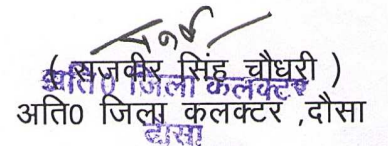 ( राजवीर सिंह चौधरी )
अति0 जिला कलक्टर
अति0 जिला कलक्टर ,दौसा
दौसा